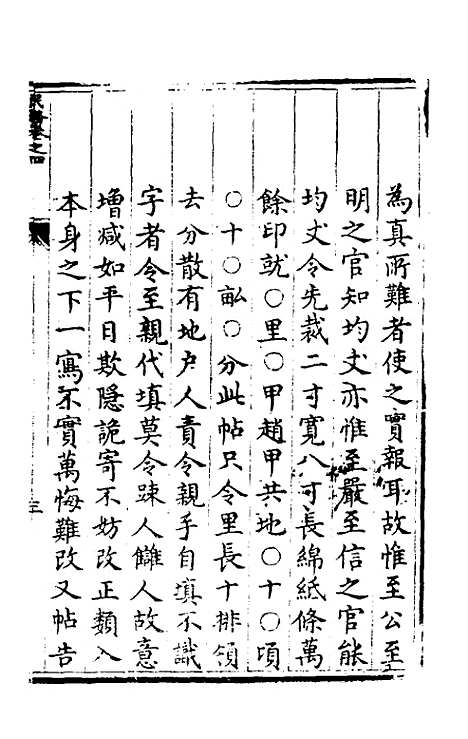 為真所難者使之實報耳故惟至公至
明之官知均丈亦惟至嚴至信之官能
均丈令先裁二寸寬八寸長綿紙條萬
餘印就〇里〇甲趙甲共地〇十〇頃
〇十〇畝〇分此帖只令里長十排領
去分散有地户人責令親手自填不識
字者令至親代填莫令踈人讎人故意
增减如平日欺隱詭寄不妨改正類入
本身之下一寫不實萬悔難改又帖告
卷之四
三